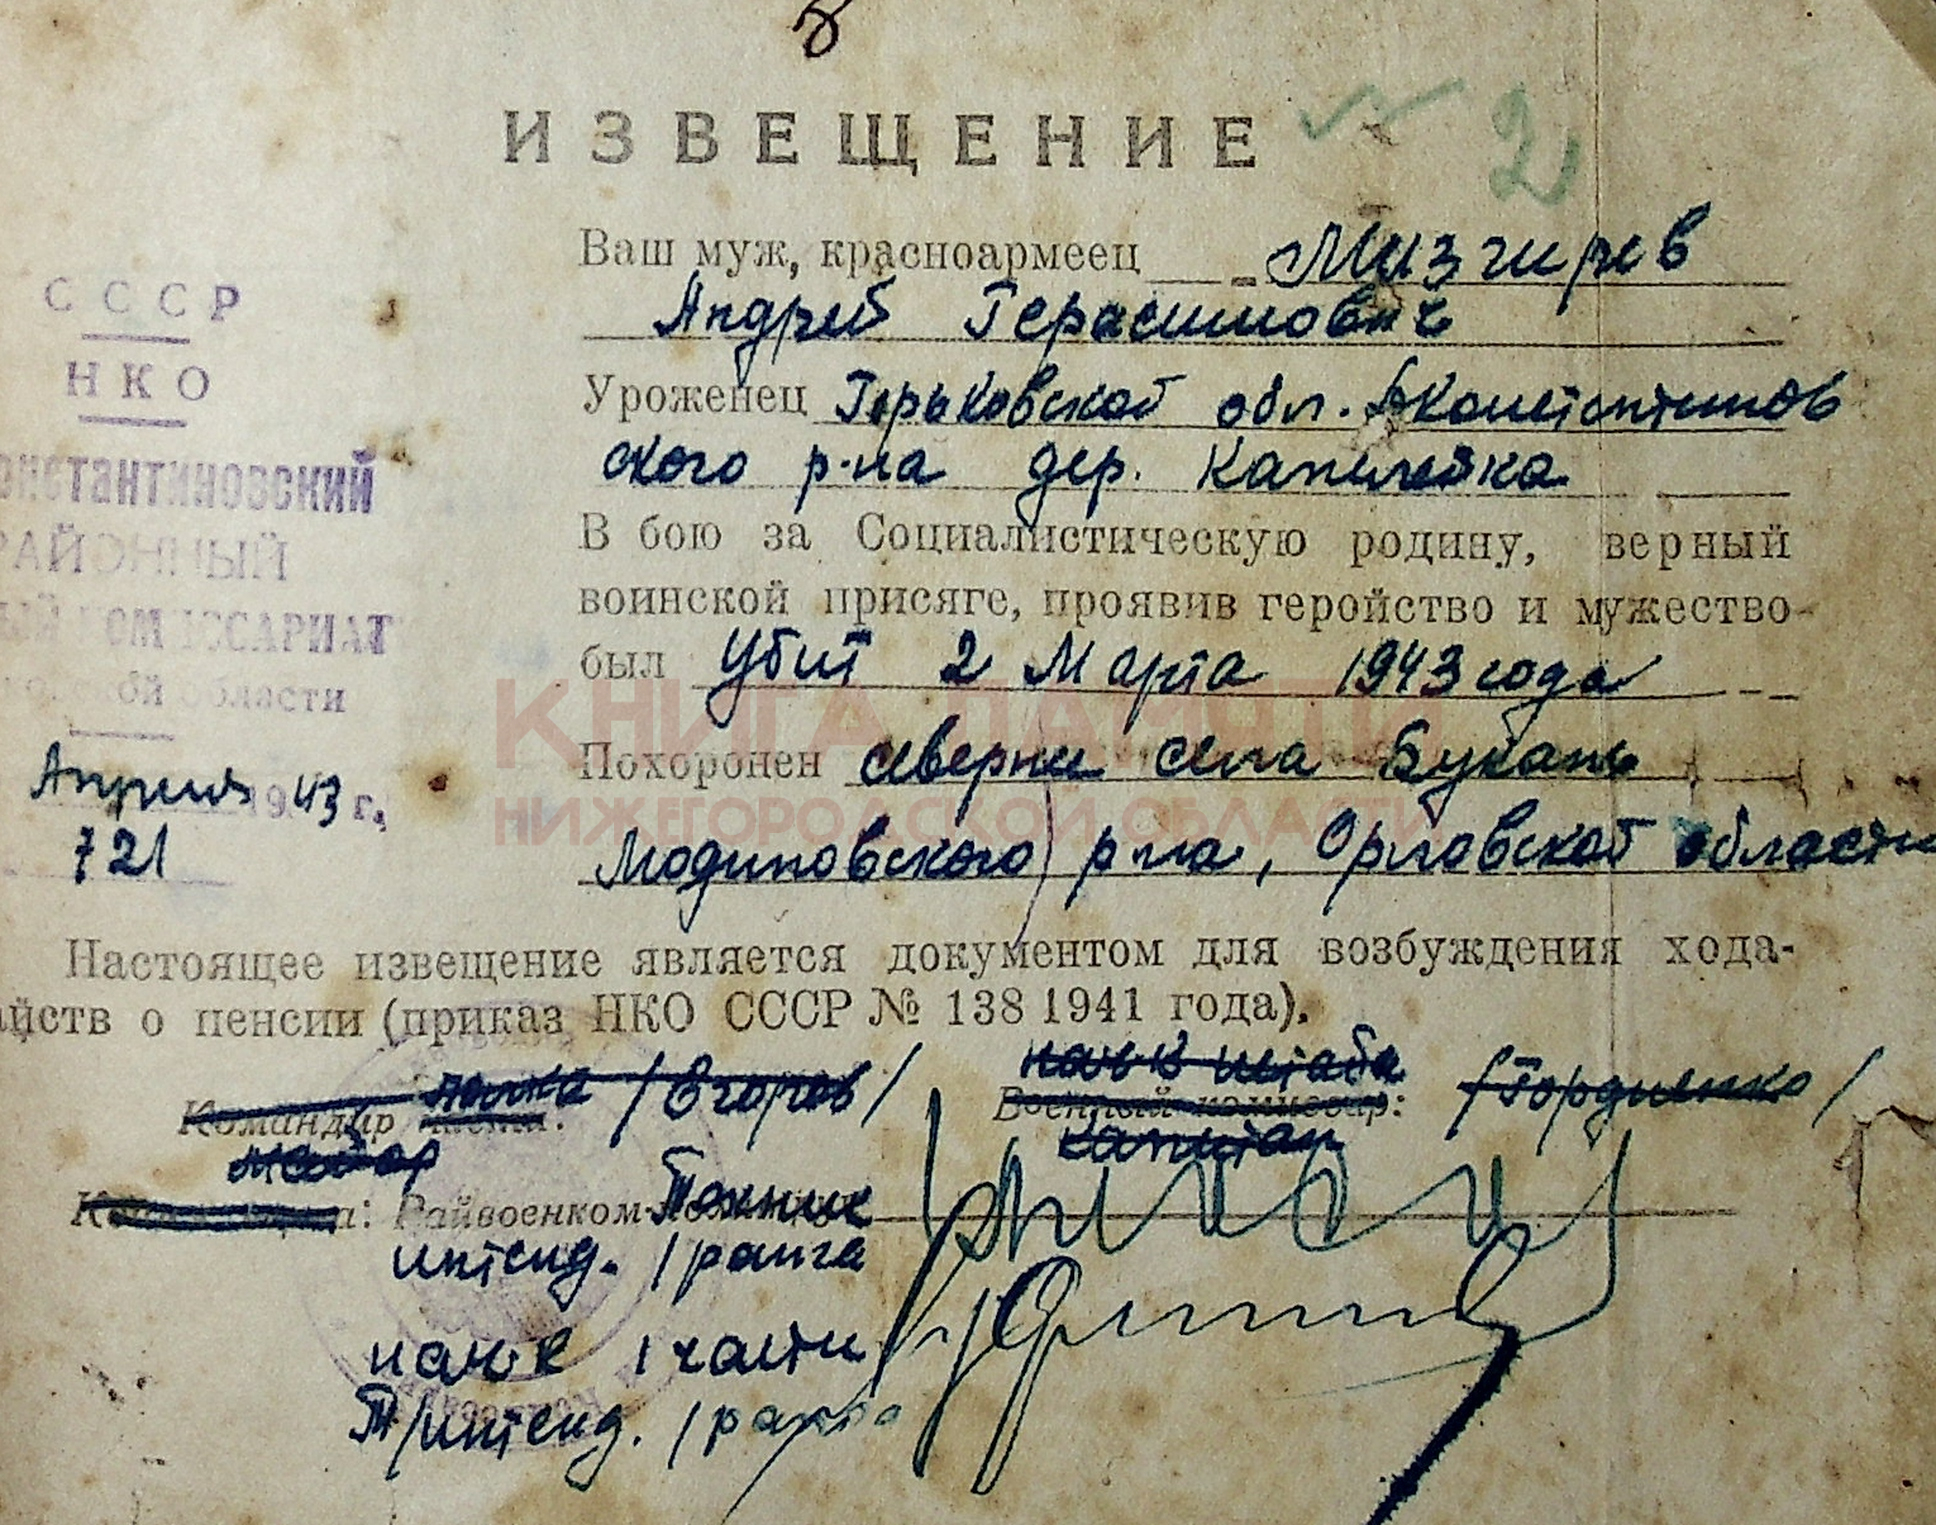 8
ИЗВЕЩЕНИЕ
2
СССР
НКО
онстантиновский
РАЙОННЫЙ
ый комиссариат
ой области
Апреля 1943 г.
721
Ваш муж, красноармеец Мизгирев
Андрей Герасимович
Уроженец Горьковской обл. Константинов
ского р-на дер.
В бою за Социалистическую родину, верный
воинской присяге, проявив геройство и мужество
был убит 2 Марта 1943 года
Похоронен севернее села Букань
Модиновского р-на, Орловской области
КНИГА ПАМЯТИ
НИЖЕГОРОДСКОЙ ОБЛАСТИ
Настоящее извещение является документом для возбуждения хода-
айств о пенсии (приказ НКО СССР № 138 1941 года).
Командир полка /Егоров/
майор
нач-к штаба /Гордиенко/
Военный комиссар:
капитан
Райвоенком Техник
интенд. 1 ранга
нач-к 1 части
Т/интенд. 1 ранга